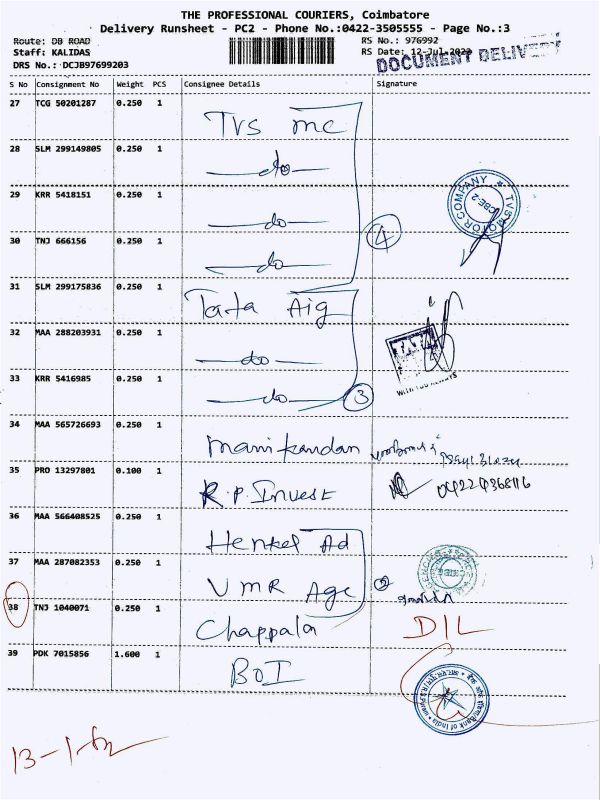 THE PROFESSIONAL COURIERS, Coimbatore
Delivery Runsheet - PC2 - Phone No.:0422-3505555 - Page No.:3
Route: DB ROAD RS No.: 976992
Staff: KALIDAS RS Date: 12-Jul-2023
DRS No.: DCJB97699203 DOCUMENT DELIVERY
S No Consignment No Weight PCS Consignee Details Signature
27 TCG 50201287 0.250 1 TVS mc
28 SLM 299149805 0.250 1 do
29 KRR 5418151 0.250 1 do
30 TNJ 666156 0.250 1 do
4
TVS MOTOR COMPANY CBE-2
31 SLM 299175836 0.250 1 Tata Aig
32 MAA 288203931 0.250 1 do
33 KRR 5416985 0.250 1 do
3
34 MAA 565726693 0.250 1 Manikandan
35 PRO 13297801 0.100 1 R.P. Invest
36 MAA 566408525 0.250 1 Henkel Ad
37 MAA 287082353 0.250 1 VMR Age
2
38 TNJ 1040071 0.250 1 Chappala DIL
39 PDK 7015856 1.600 1 BOI
Bank of India